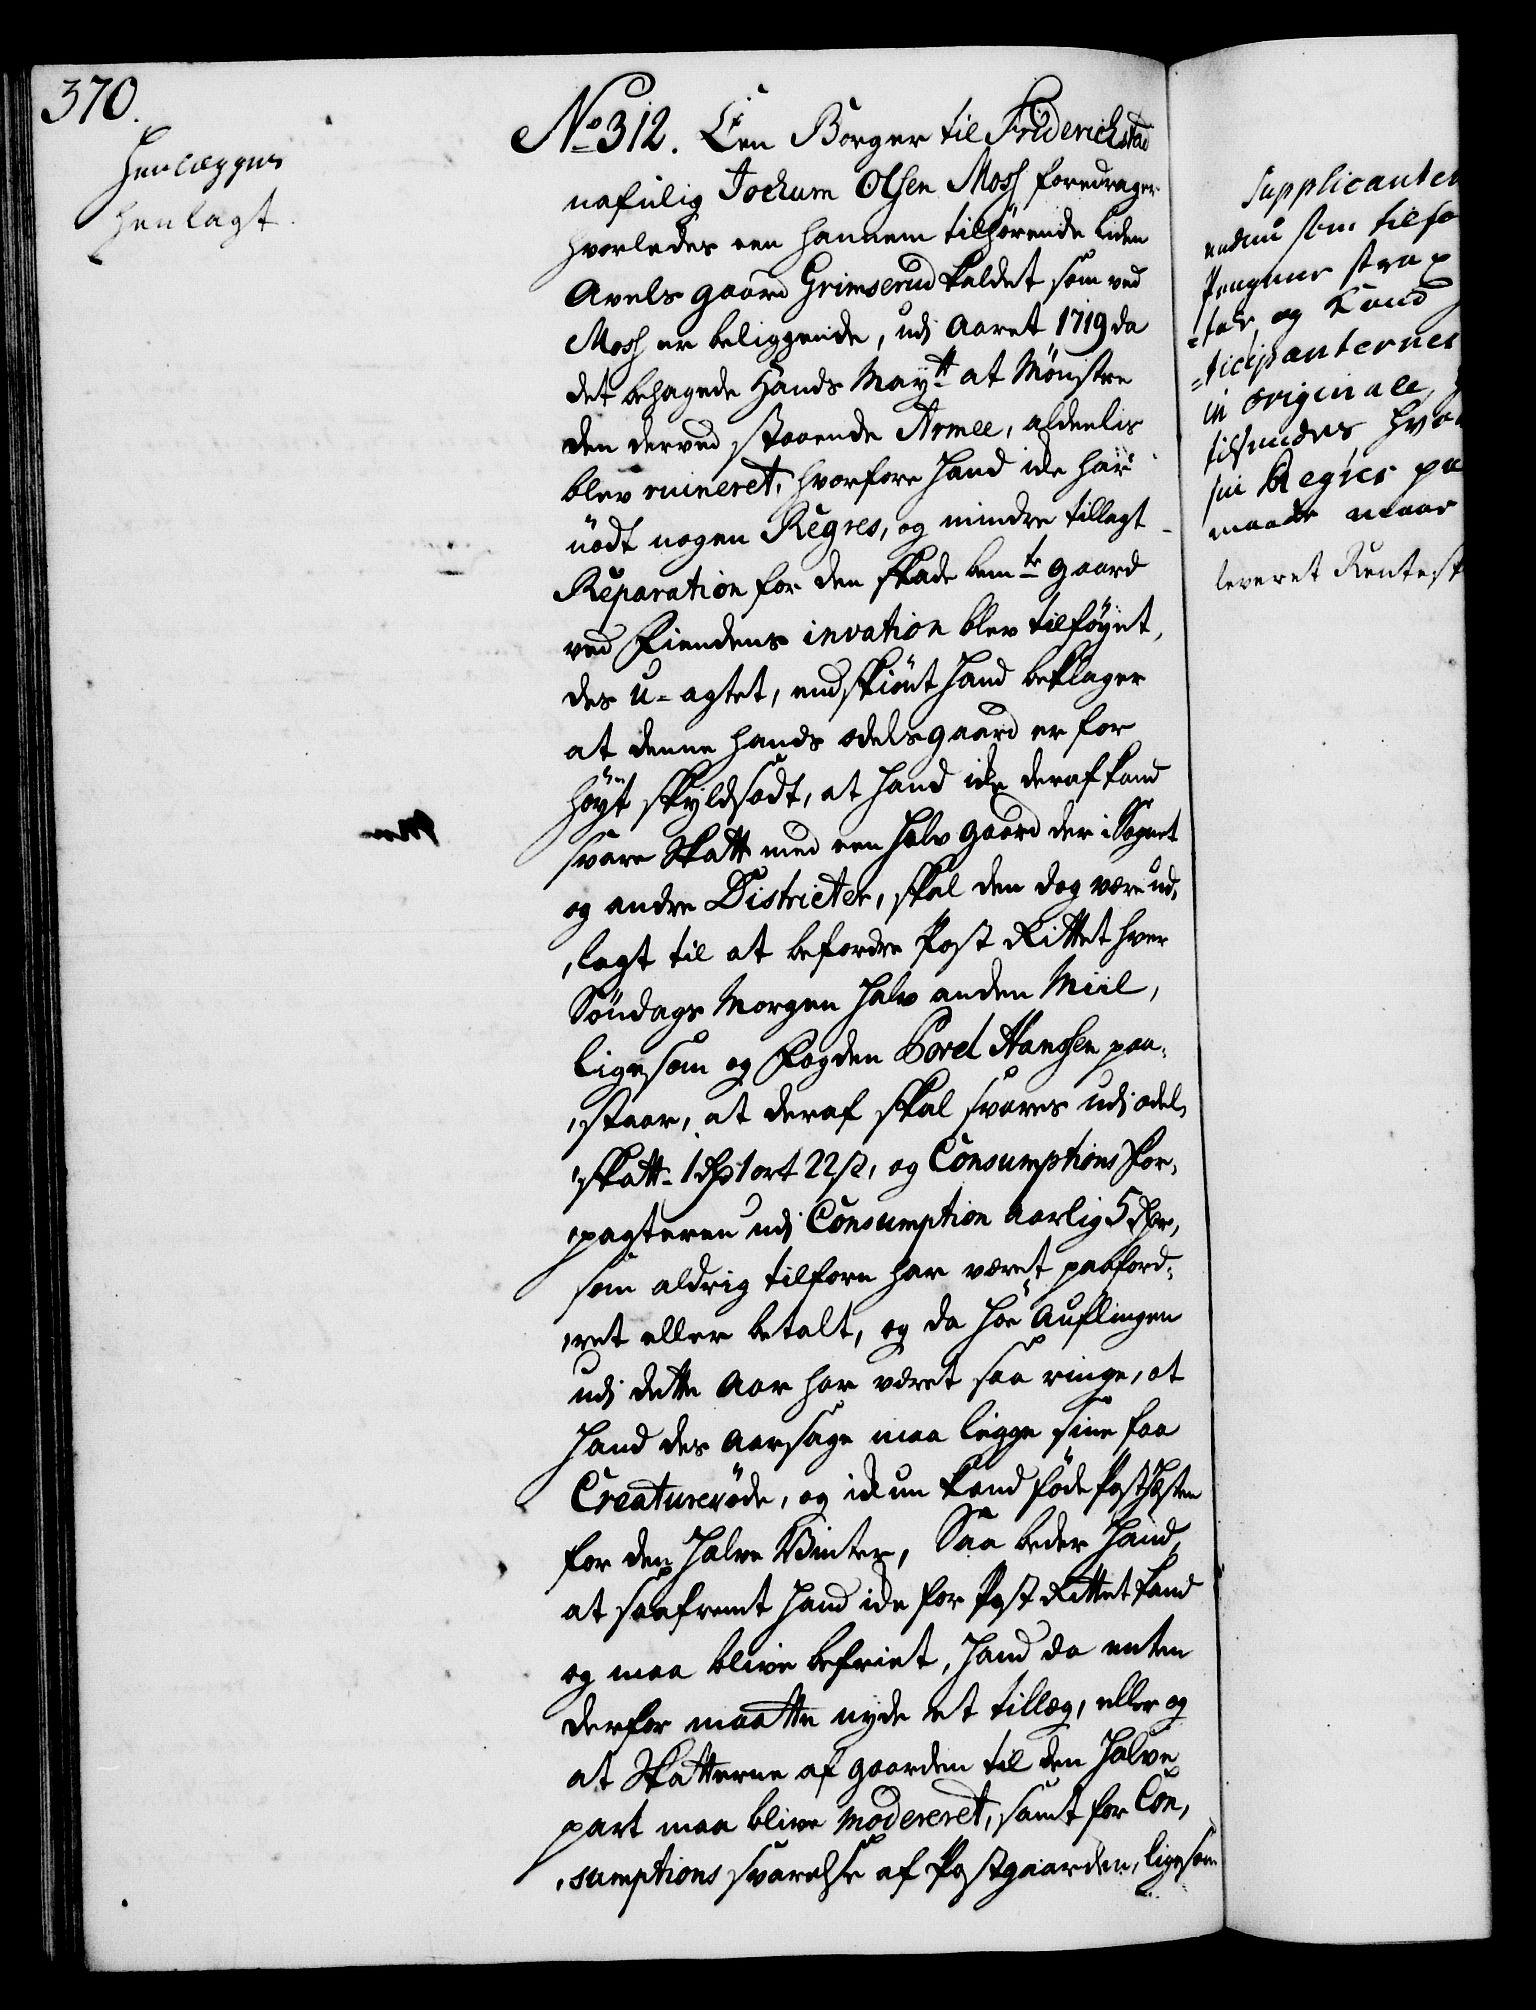 370.
Henlegges
henlagt.
No 312. Een Borger til Friderichstad
nafnlig Jochum Olsen Moss foredrager
hvorledes een hannem tilhørende liden
Avels gaard Grimserud kaldet som ved
Moss er beliggende, udj Aaret 1719 da
det behagede Hands Maytt at Mønstre
den derved staaende Armee, aldeelis
blev ruineret, hvorfore Hand icke har
nödt nogen Regres, og mindre tillagt
Reparation for den skade bemte gaard
ved Fiendens invation blev tilføyet,
des u-agtet, endskiönt Hand beklager
at denne hands odelsgaard er for
höyt skyldsadt, at Hand icke deraf kand
svare Skatt med een Halv gaard der i Sognet
og andre Districter, skal den dog være ud,
,lagt til at befordre Post Rittet hver
Söndags Morgen Halv anden Miil,
ligesom og Fogden Povel Hanssen paa,
,staar, at deraf skal svares udj odel,
,skatt 1 rdr 1 ort 22 s, og Consumptions For,
,pagteren udj Consumption aarlig 5 rdr,
som aldrig tilforn har været paaford,
,ret eller betalt, og da Höe Auflingen
udj dette Aar har været saa ringe, at
Hand des Aarsage maa legge sine faa
Creaturer öde, og icke kand föde Posthesten
for den Halve Winter, Saa beder Hand,
at saafremt Hand icke for Post Rittet kand
og maa blive befriet, Hand da enten
derfor maatte nyde et tillæg, eller og
at Skatterne af gaarden til den Halve
part maa blive Modereret, samt for Con,
,sumptions svarelse af Postgaarden, ligesom
Supplicanter
endnu som tilfo
Pengene strax
og Kand
=ticipanternes
in originale,
tilsendes hvo
sin Regres pa
maatte
leveret Rentesk